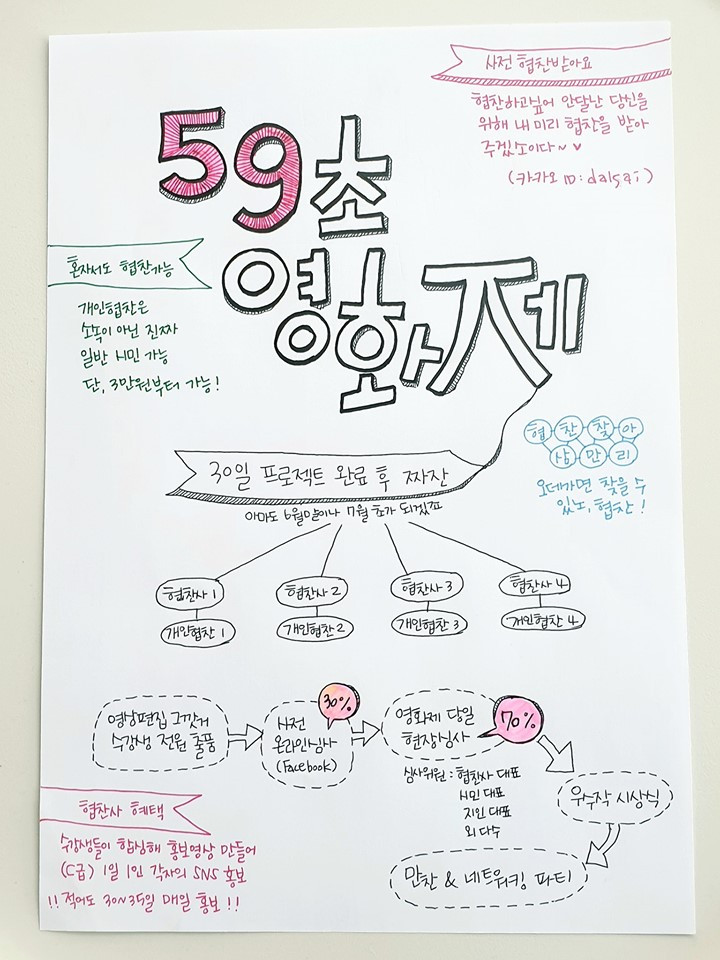 사전 협찬받아요
협찬하고싶어 안달난 당신을
위해 내 미리 협찬을 받아
주겠소이다~ ♥
(카카오 ID: dalsai)
59초
영화제
혼자서도 협찬가능
개인협찬은
소속이 아닌 진짜
일반 시민 가능
단, 3만원부터 가능!
협찬찾아
삼만리
오데가면 찾을 수
있노, 협찬!
30일 프로젝트 완료 후 짜잔
아마도 6월말이나 7월 초가 되겠죠
협찬사 1
협찬사 2
협찬사 3
협찬사 4
개인협찬 1
개인협찬 2
개인협찬 3
개인협찬 4
영상편집 그깟거
수강생 전원 출품
30%
사전
온라인심사
(Facebook)
영화제 당일
현장심사
70%
심사위원 : 협찬사 대표
시민 대표
지인 대표
외 다수
우수작 시상식
만찬 & 네트워킹 파티
협찬사 혜택
수강생들이 합심해 홍보영상 만들어
(C급) 1일 1인 각자의 SNS 홍보
!! 적어도 30~35일 매일 홍보 !!